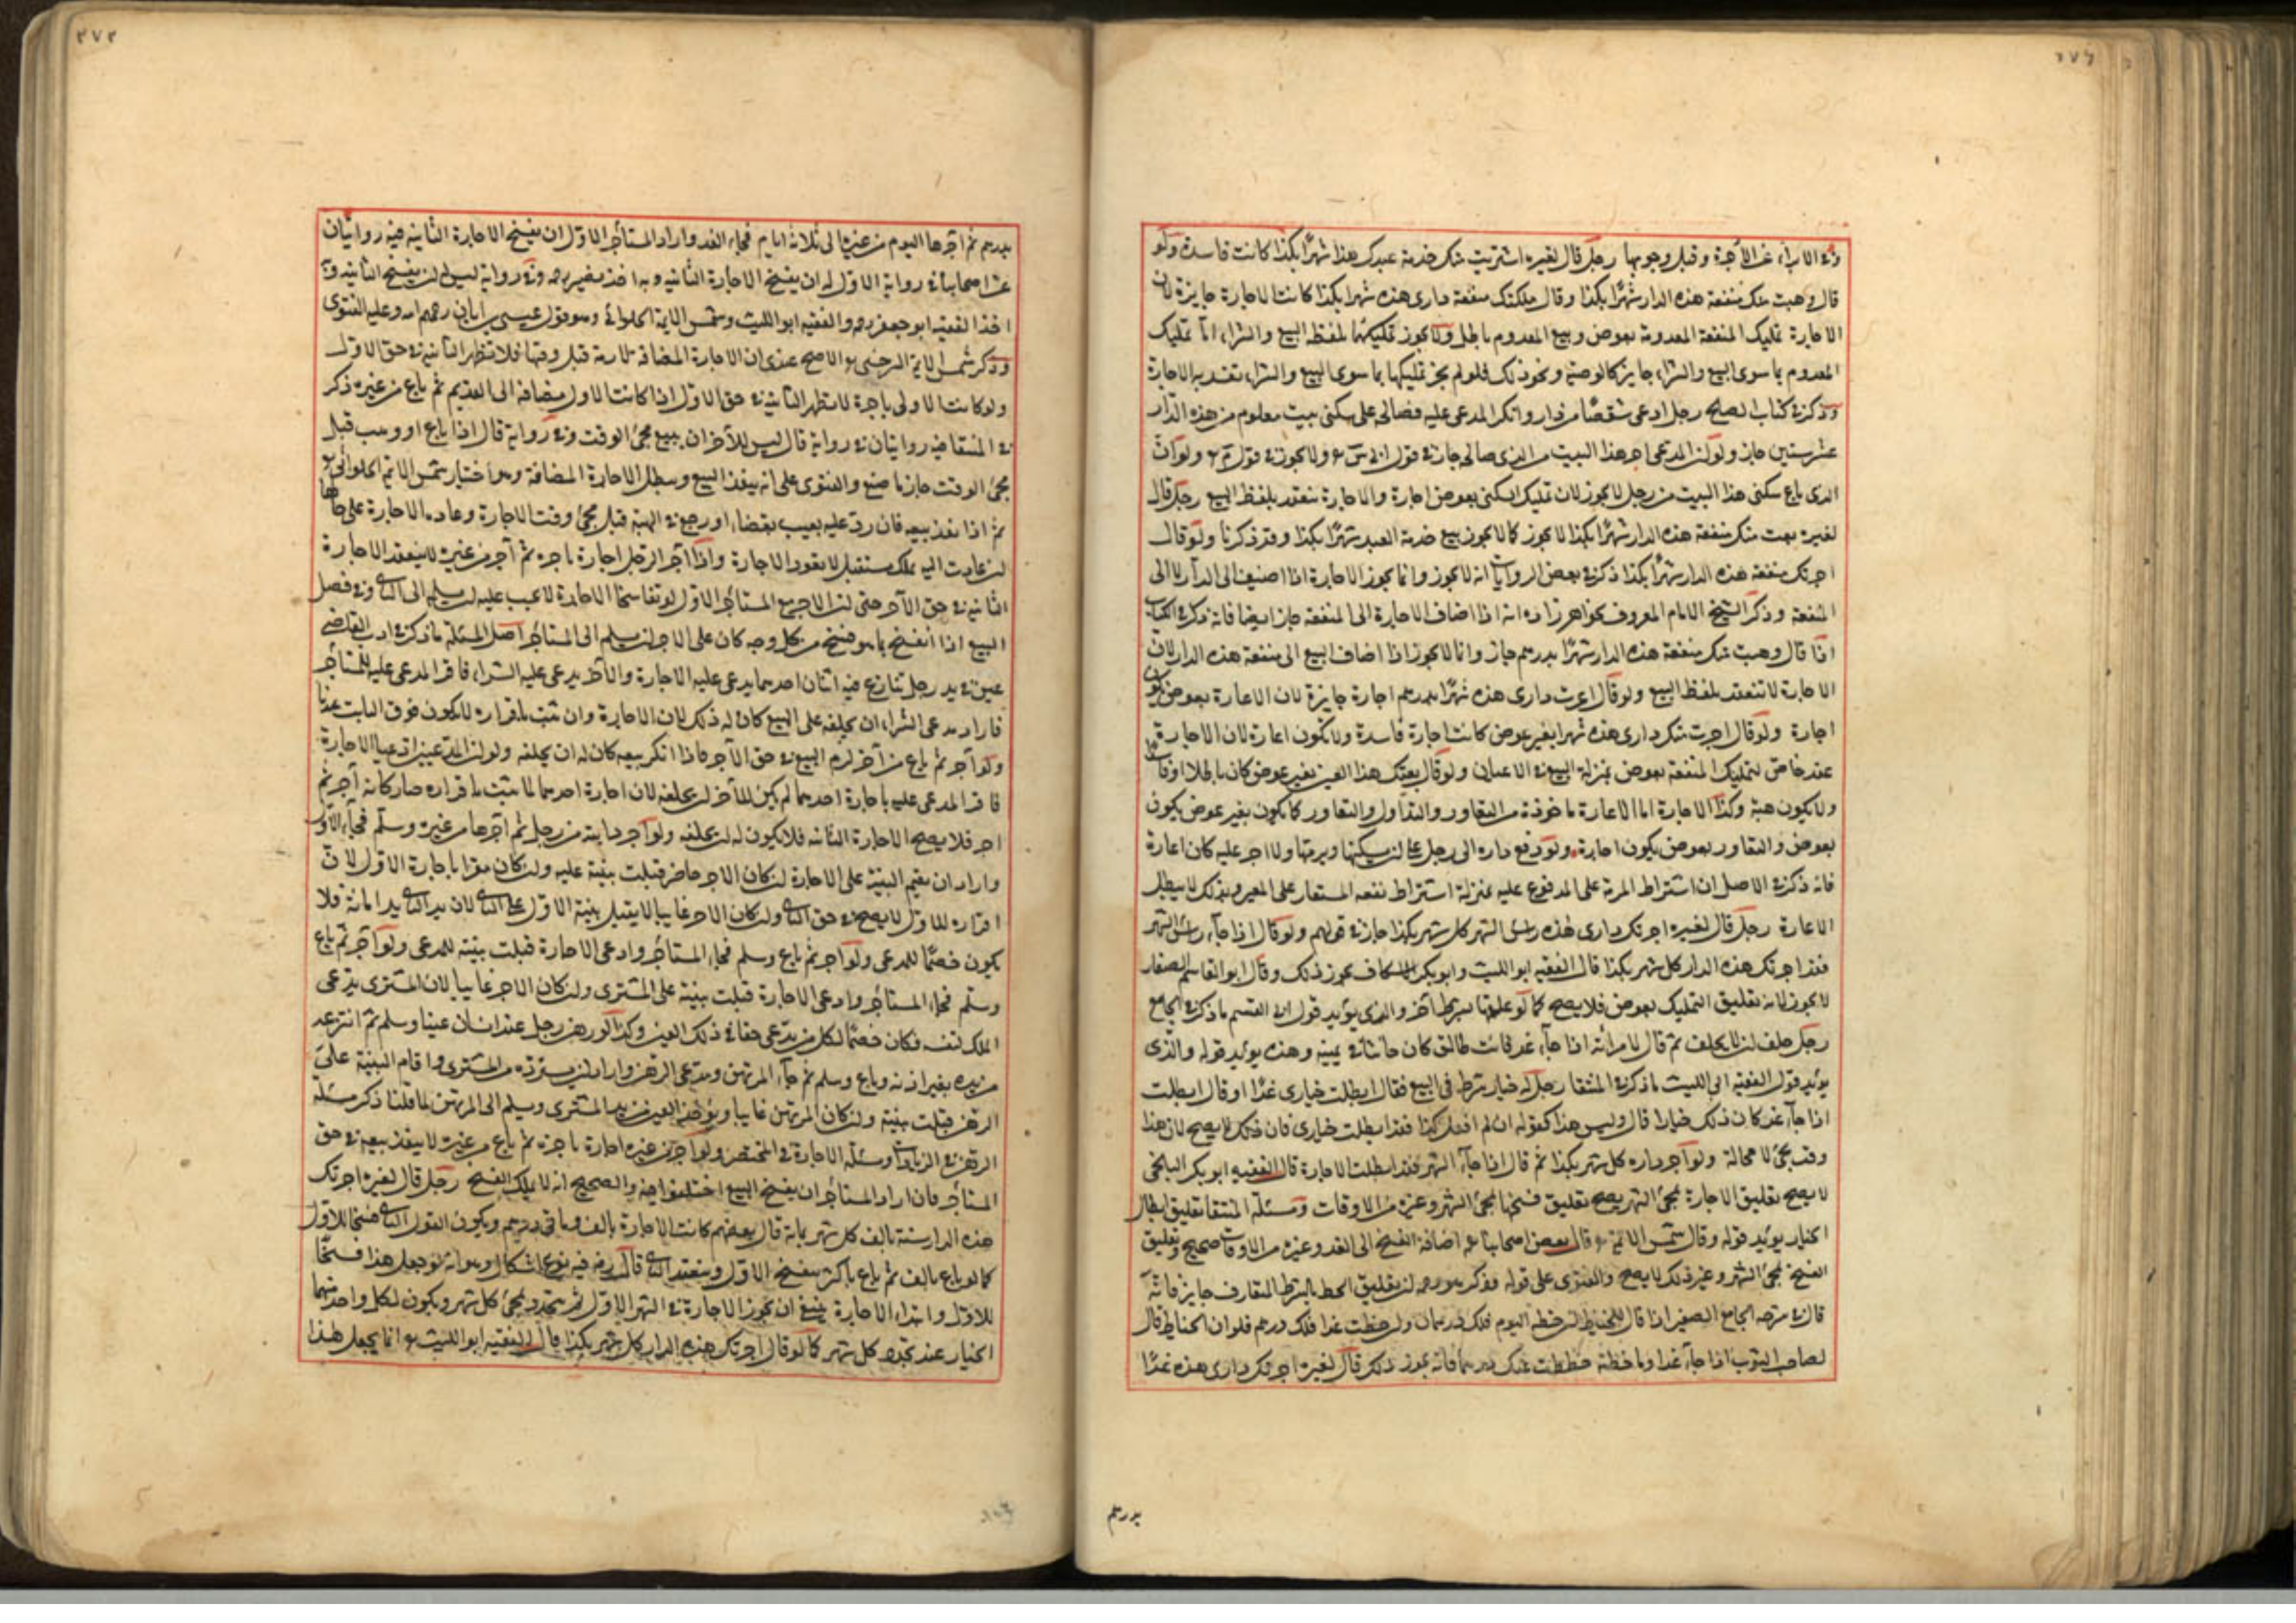 وفي الابراء عن الأجرة وقبل وجوبها رجل قال لغيره اشتريت منك خدمة عبدك هذا شهرًا بكذا كانت فاسدة ولو
قال وهبت منك منفعة هذه الدار شهرًا بكذا وقال ملكتك منفعة داري هذه شهرا بكذا كانت الاجارة جايزة لان
الاجارة تمليك المنفعة المعدومة بعوض وبيع المعدوم باطل ولا يجوز تمليكها بلفظ البيع والشراء اما تمليك
المعدوم بما سوى البيع والشراء جايز كالوصية ونحو ذلك فلو لم يجز تمليكها بما سوى البيع والشراء به الاجارة
وذكر في كتاب الصلح رجل ادعى شقصًا من دار وانكر المدعى عليه فصالحه على سكنى بيت معلوم من هذه الدار
عشر سنين جاز ولو ان المدعي اجر هذا البيت من الذي صالحه جاز في قول ولا يجوز في قول ولو ان
الذي باع سكنى هذا البيت من رجل لا يجوز لان تمليك السكنى بعوض اجارة والاجارة تنعقد بلفظ البيع رجل قال
لغيره بعت منك منفعة هذه الدار شهرًا بكذا لا يجوز كما لا يجوز بيع خدمة العبد شهرًا بكذا وقد ذكرنا ولو قال
اجرتك منفعة هذه الدار شهرًا بكذا ذكر في بعض الروايات انه لا يجوز وانما يجوز الاجارة اذا اضيف الى الدار لا الى
المنفعة وذكر الشيخ الامام المعروف بخواهر زاده انه اذا اضاف الاجارة الى المنفعة جاز ايضا فانه ذكر في الكتاب
اذا قال وهبت منك منفعة هذه الدار شهرًا بدرهم جاز وانما لا يجوز اذا اضاف البيع الى منفعة هذه الدار لان
الاجارة لا تنعقد بلفظ البيع ولو قال اعرت داري هذه شهرًا بدرهم اجارة جايزة لان الاعارة بعوض يكون
اجارة ولو قال اجرت منك داري هذه شهرا بغير عوض كانت اجارة فاسدة ولا تكون اعارة لان الاجارة
عقد خاص لتمليك المنفعة بعوض بمنزلة البيع في الاعيان ولو قال بعتك هذا العين بغير عوض كان باطلا او فاسدا
ولا يكون هبة وكذا الاجارة اما الاعارة ماخوذة من التعاور والتداول والتعاور كما يكون بغير عوض يكون
بعوض والتعاور بعوض يكون اجارة ولو دفع داره الى رجل على ان يسكنها ويرمها ولا اجر عليه كان اعارة
فانه ذكر في الاصل ان اشتراط المرمة على المدفوع عليه بمنزلة اشتراط نفقة المستعار على المعير وبذلك لا يبطل
الاعارة رجل قال لغيره اجرتك داري هذه راس الشهر كل شهر بكذا جاز في قولهم ولو قال اذا جاء راس الشهر
فقد اجرتك هذه الدار كل شهر بكذا قال الفقيه ابو الليث وابو بكر الاسكاف يجوز ذلك وقال ابو القاسم الصفار
لا يجوز لانه تعليق التمليك بعوض فلا يصح كما لو علقها بشرط اخر والذي يؤيد قول ابي القسم ما ذكر في الجامع
رجل حلف ان لا يحلف ثم قال لامراته اذا جاء غد فانت طالق كان حانثا في يمينه وهذه يؤيد قوله والذي
يؤيد قول الفقيه ابي الليث ما ذكر في المنتقا رجل له خيار شرط في البيع فقال ابطلت خياري غدًا او قال ابطلت
اذا جاء غد كان ذلك قال وليس هذا كقوله ان لم افعل كذا فقد ابطلت خياري فان ذلك لا يصح لان هذا
وقت يجئ لا محالة ولو آجر داره كل شهر بكذا ثم قال اذا جاء الشهر فقد ابطلت الاجارة قال الفقيه ابو بكر البلخي
لا يصح تعليق الاجارة بمجئ الشهر يصح تعليق فسخها بمجئ الشهر وغيره من الاوقات ومسئلة المنتقا تعليق ابطال
الخيار يؤيد قوله وقال شمس الائمة قال بعض اصحابنا اضافة الفسخ الى الغد وغيره من الاوقات صحيح وتعليق
الفسخ بمجئ الشهر وغير ذلك لا يصح والفتوى على قوله وذكر ان تعليق الحط بالشرط المتعارف جايز فانه
قال في شرحه الجامع الصغير اذا قال للخياط ان خطته اليوم فلك درهمان وان خطت غدا فلك درهم فلو ان الخياط قال
لصاحب الثوب اذا جاء غدا وما خطته حططت عنك درهما فانه يجوز ذلك قال لغيره اجرتك داري هذه غدًا
بدرهم
بدرهم ثم اجرها اليوم من غيره الى ثلاثة ايام فجاء الغد واراد المستاجر الاول ان يفسخ الاجارة الثانية فيه روايتان
عن اصحابنا في رواية الاول له ان يفسخ الاجارة الثانية وبه اخذ نصير وفي رواية ليس له ان يفسخ الثانية وبه
اخذ الفقيه ابو جعفر والفقيه ابو الليث وشمس الايمة الحلوائي وهو قول عيسى بن ابان رحمهم الله وعليه الفتوى
وذكر شمس الايمة السرخسي الاصح عندي ان الاجارة المضافة لازمة قبل وقتها فلا تظهر الثانية في حق الاول
ولو كانت الاولى باجرة لا تظهر الثانية في حق الاول اذا كانت الاول مضافة الى القديم ثم باع من غيره ذكر
في المنتقا فيه روايتان في رواية قال ليس للآخر ان يبيع مجئ الوقت وفي رواية قال اذا باع او وهب قبل
مجئ الوقت جاز ما صنع والفتوى على انه ينفذ البيع ويبطل الاجارة المضافة وهو اختيار شمس الائمة الحلوائي
ثم اذا نفذ بيعه فان رد عليه بعيب بقضاء او رجع في الهبة قبل مجئ وقت الاجارة وعاد الاجارة على حالها
ان عادت اليه بملك مستقبل لا تعود الاجارة واذا آجر الرجل اجارة باجره ثم آجر من غيره لا ينعقد الاجارة
الثانية في حق الآجر حتى ان الاجر مع المستاجر الاول لو تفاسخا الاجارة لا يجب عليه ان يسلم الى الثاني وفي فصل
البيع اذا انفسخ بما هو فسخ من كل وجه كان على الاجر ان يسلم الى المستاجر اصل المسئلة ما ذكر في ادب القاضي
عين في يد رجل تنازع فيه اثنان احدهما يدعي عليه الاجارة والآخر يدعي عليه الشراء فاقر المدعى عليه للمستاجر
فاراد مدعي الشراء ان يحلفه على البيع كان له ذلك لان الاجارة وان ثبت باقراره لا يكون فوق الثابت عيانا
ولو آجر ثم باع من آخر لزم البيع في حق الآجر فاذا انكر بيعه كان له ان يحلفه ولو ان المدعيين ادعيا الاجارة
فاقر المدعى عليه باجارة احدهما لم يكن للآخر ان يحلفه لان اجارة احدهما لما يثبت باقراره صار كانه آجر ثم
اجر فلا يصح الاجارة الثانية فلا يكون له ان يحلفه ولو آجر دابة من رجل ثم اجرها من غيره وسلم فجاء الاول
واراد ان يقيم البينة على الاجارة ان كان الاجر حاضر قبلت بينة عليه وان كان مقرا باجارة الاول لان
اقراره للاول لا يصح في حق الثاني وان كان الاجر غايبا لا يقبل بينة الاول على الثاني لان يد الثاني يد امانة فلا
يكون خصمًا للمدعي ولو آجر ثم باع وسلم فجاء المستاجر وادعى الاجارة قبلت بينته للمدعي ولو آجر ثم باع
وسلم فجاء المستاجر وادعى الاجارة قبلت بينته على المشتري وان كان الاجر غايبا لان المشتري يدعي
الملك لنفسه فكان خصمًا لكل من يدعي حقا في ذلك العين وكذا لو رهن رجل عند انسان عينا وسلم ثم انتزعه
من يده بغير اذنه وباع وسلم ثم جاء المرتهن ومدعي الرهن واراد ان يسترده من المشتري واقام البينة على
الرهن قبلت بينته وان كان المرتهن غايبا ويؤخذ العين من يد المشتري ويسلم الى المرتهن لما قلنا ذكر مسئلة
الرهن في الزيادات ومسئلة الاجارة في المختصر ولو آجر من غيره اجارة باجره ثم باع من غيره لا ينفذ بيعه في حق
المستاجر فان اراد المستاجر ان يفسخ البيع اختلفوا فيه والصحيح انه لا يملك الفسخ رجل قال لغيره اجرتك
هذه الدار سنة بالف كل شهر بمائة قال بعضهم كانت الاجارة بالف وماتي درهم ويكون القول الثاني فسخا للاول
كما لو باع بالف ثم باع باكثر ينفسخ الاول وينعقد الثاني قال رضه فيه نوع اشكال وهو انه لو جعل هذا فسخا
للاول وابتداء الاجارة ينبغي ان يجوز الاجارة في الشهر الاول ثم يتجدد بمجئ كل شهر ويكون لكل واحد منهما
الخيار عند تجدد كل شهر كما لو قال اجرتك هذه الدار كل شهر بكذا قال الفقيه ابو الليث انما يجعل هذا